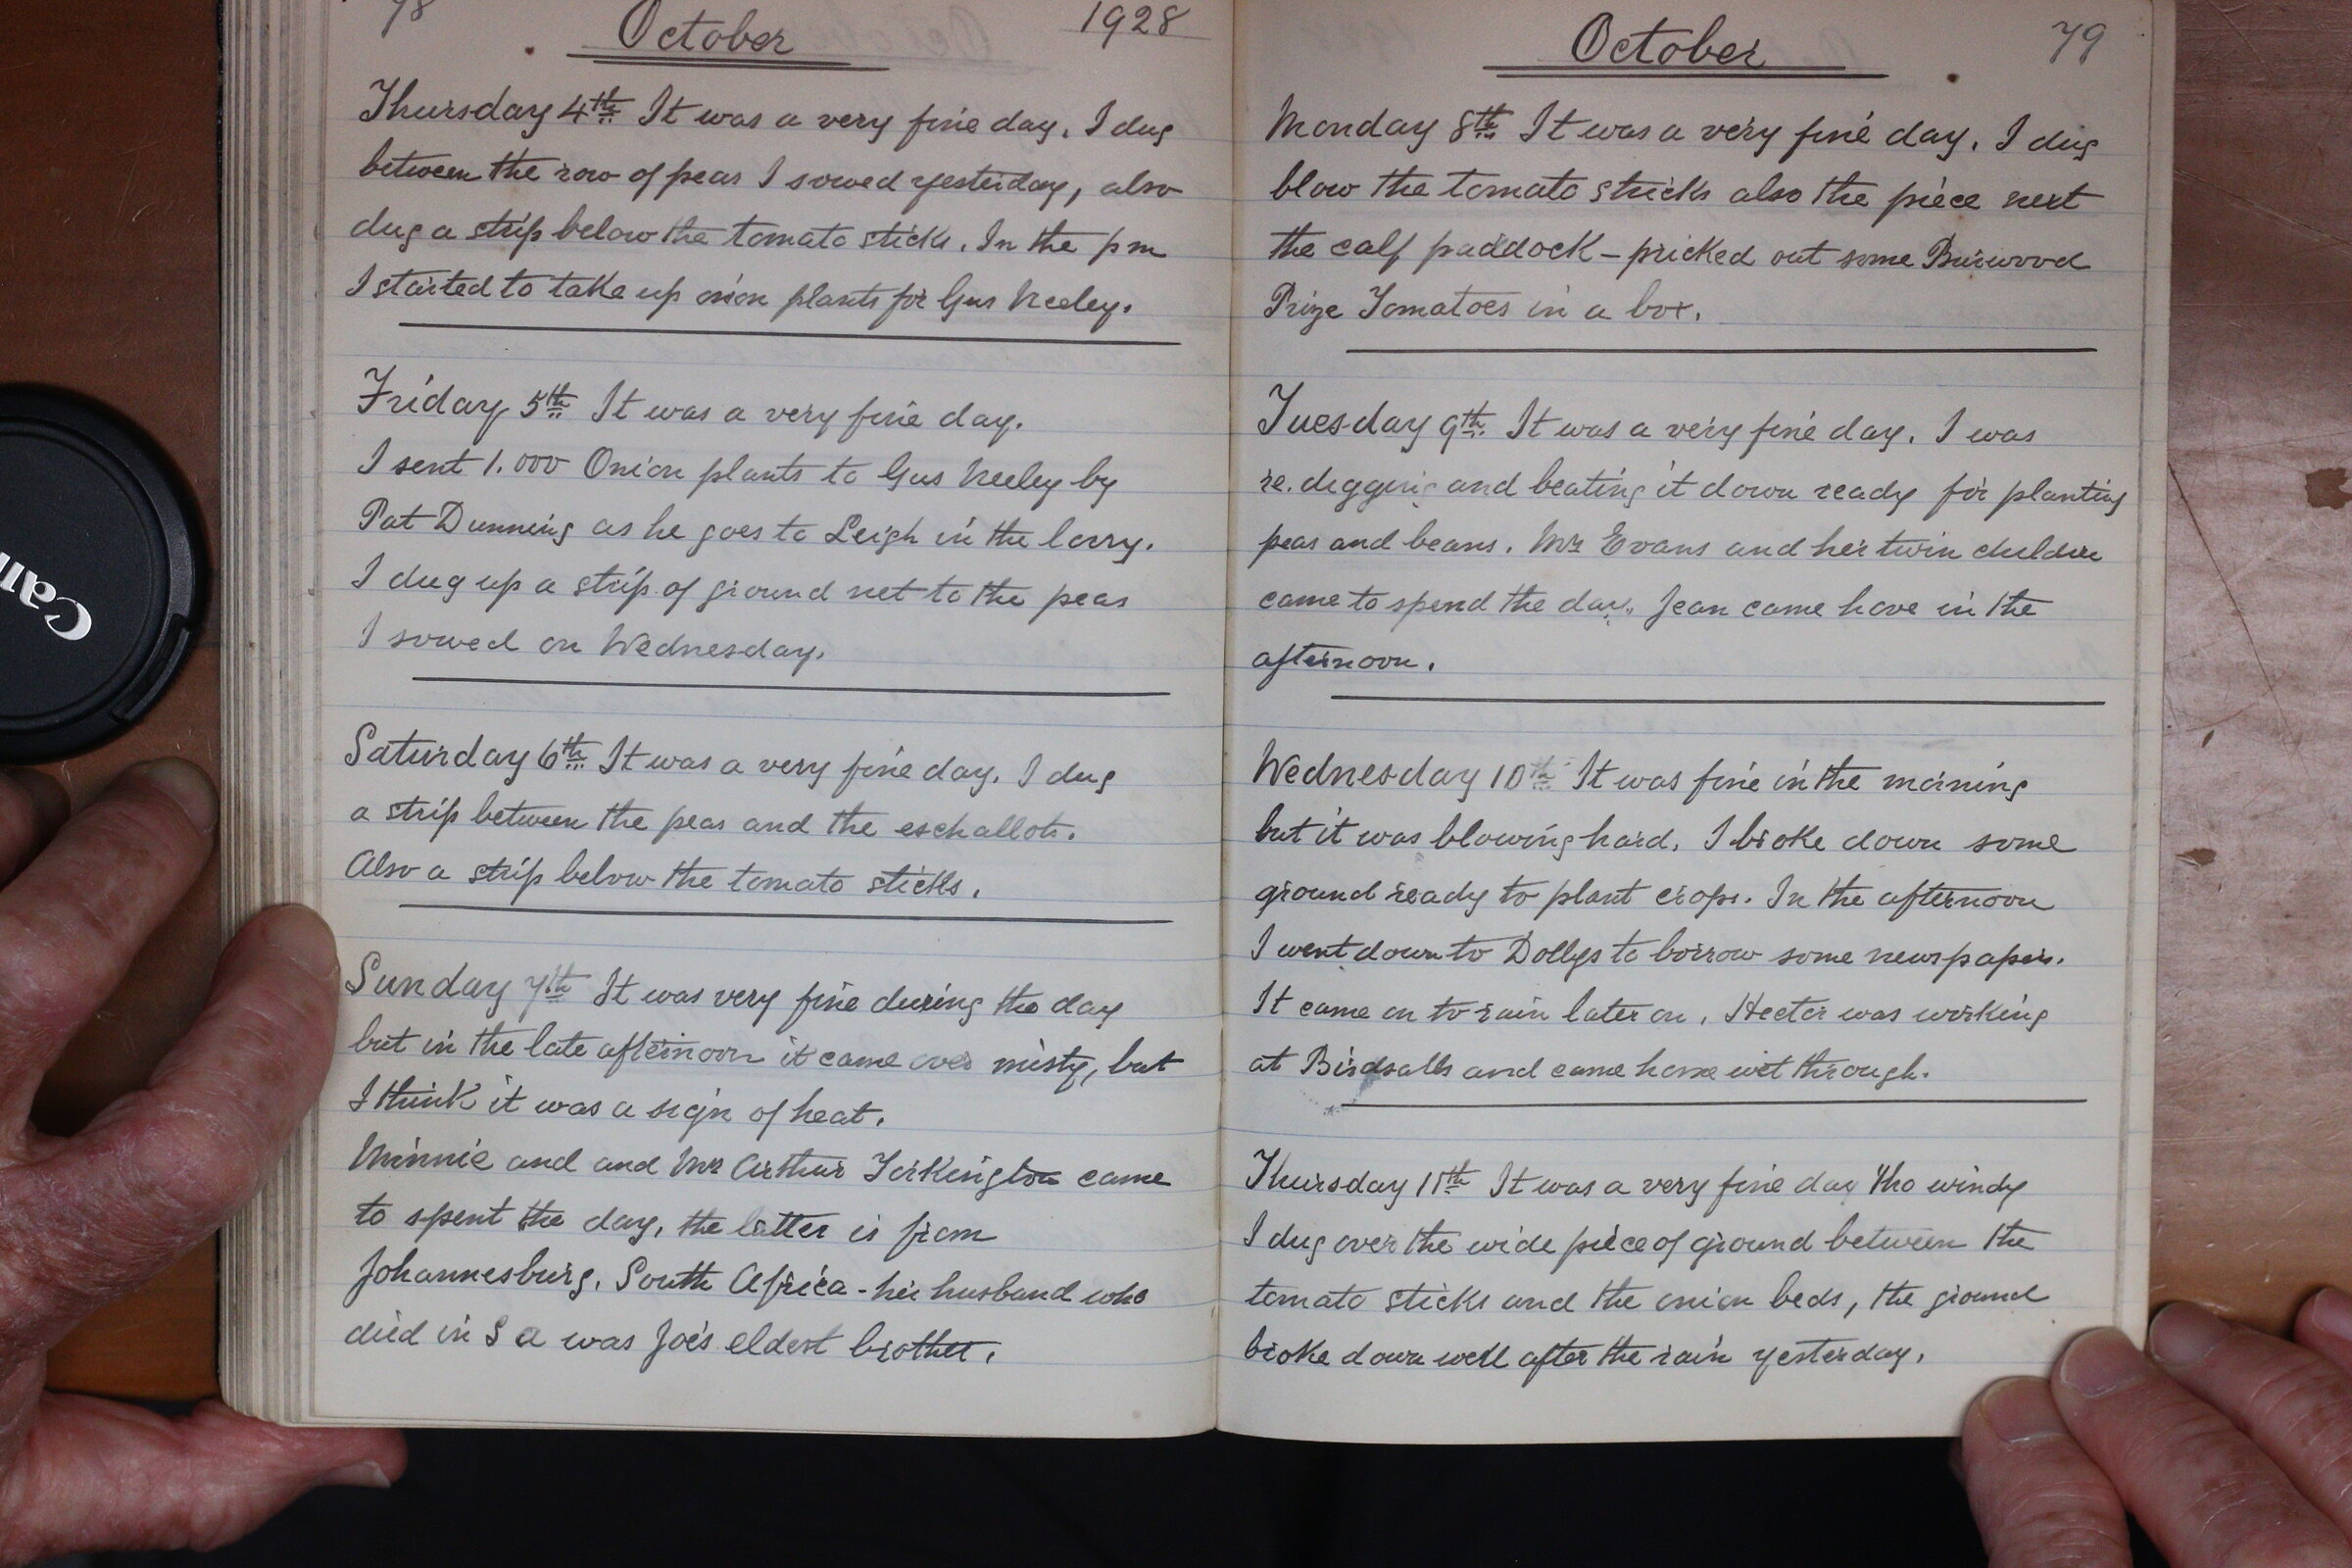 78 October 1928
Thursday 4th It was a very fine day. I dug
between the row of peas I sowed yesterday, also
dug a strip below the tomato sticks. In the pm
I started to take up onion plants for Gus Neeley.
Friday 5th It was a very fine day.
I sent 1.000 Onion plants to Gus Neeley by
Pat Dunning as he goes to Leigh in the lorry.
I dug up a strip of ground net to the peas
I sowed on Wednesday.
Saturday 6th It was a very fine day. I dug
a strip between the peas and the eschallots.
Also a strip below the tomato sticks.
Sunday 7th It was very fine during the day
but in the late afternoon it came over misty, but
I think it was a sign of heat.
Minnie and and Mrs Arthur Torkington came
to spent the day, the latter is from
Johannesburg. South Africa - her husband who
died in S a was Joe's eldest brother.
October 79
Monday 8th It was a very fine day. I dug
blow the tomato sticks also the piece next
the calf paddock - pricked out some Burwood
Prize Tomatoes in a box.
Tuesday 9th It was a very fine day. I was
re.digging and beating it down ready for planting
peas and beans. Mrs Evans and her twin children
came to spend the day. Jean came hove in the
afternoon.
Wednesday 10th It was fine in the morning
but it was blowing hard. I broke down some
ground ready to plant crops. In the afternoon
I went down to Dollys to borrow some newspapers.
It came on to rain later on. Hector was working
at Birdsalls and came home wet through.
Thursday 11th It was a very fine day tho windy
I dug over the wide piece of ground between the
tomato sticks and the onion beds, the ground
broke down well after the rain yesterday.
Can